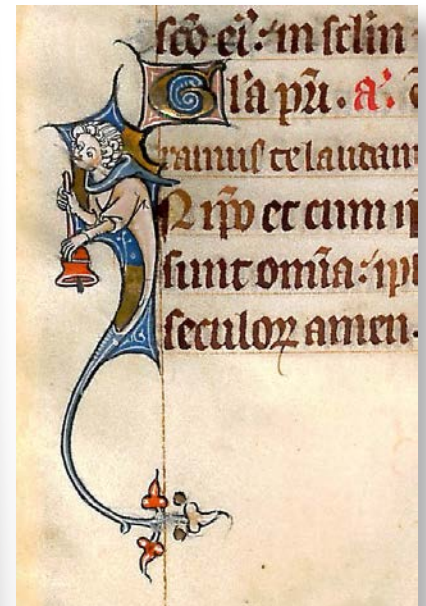 sc̄o ei᷒: in sc̄lm
Gl'a pr̄i. a᷒.
ramus te laudam
Q ip̄o et cum ip
sunt om̄ia: ip
seculoꝝ amen.